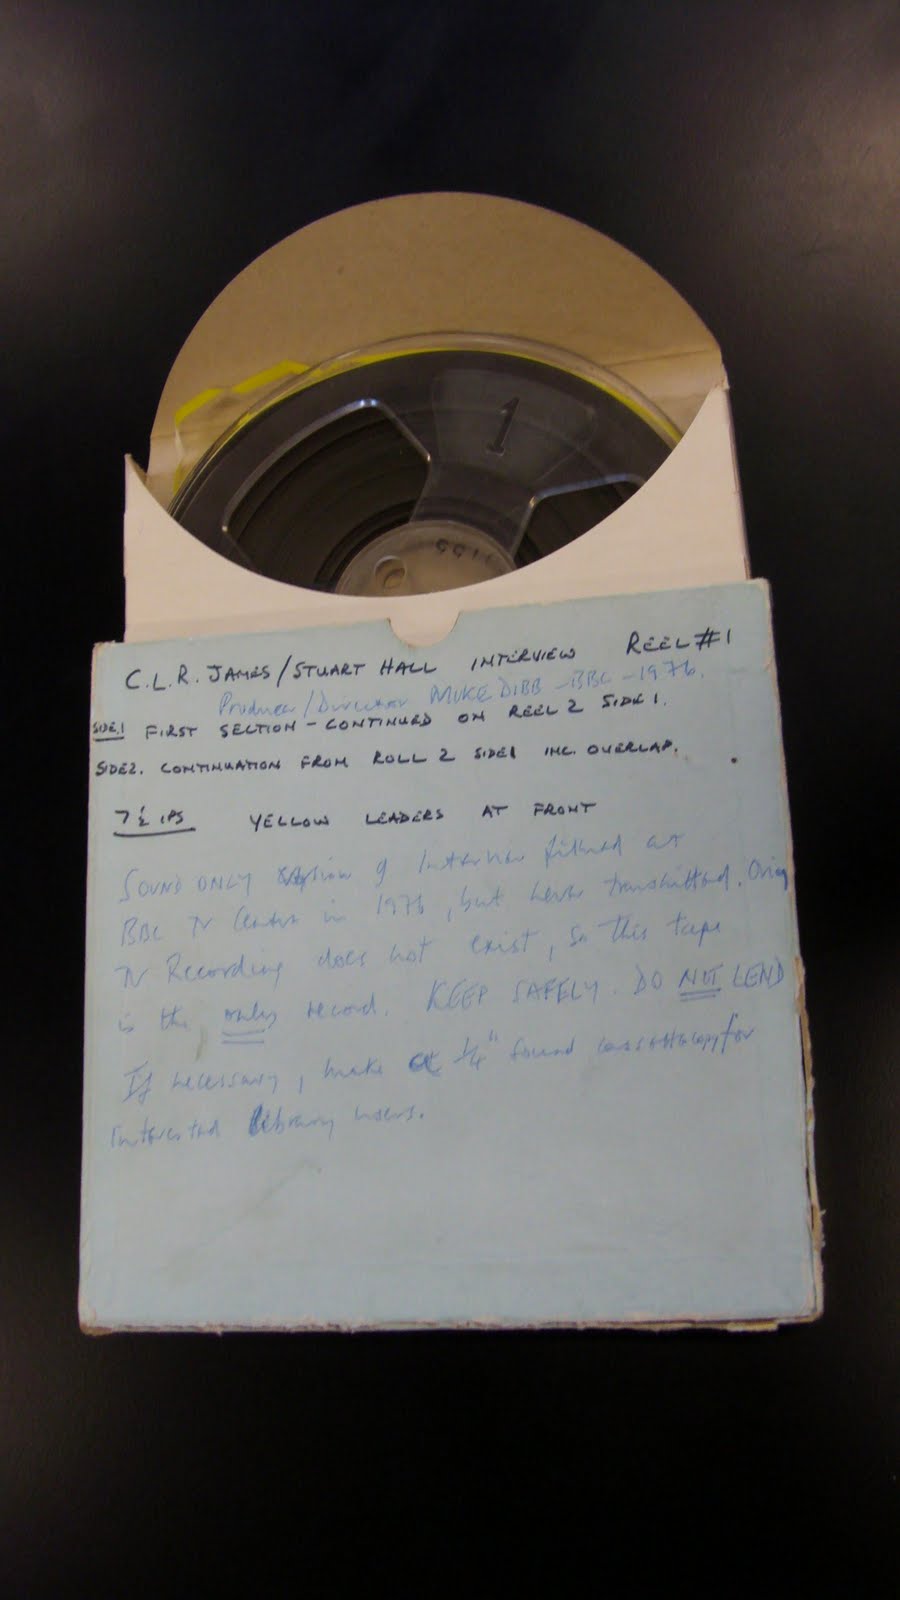 1
1155
C.L.R. JAMES/STUART HALL INTERVIEW REEL #1
Producer/Director MIKE DIBB - BBC - 1976.
SIDE.1 FIRST SECTION - CONTINUED ON REEL 2 SIDE 1.
SIDE2. CONTINUATION FROM ROLL 2 SIDE1 INC. OVERLAP.
7½ IPS YELLOW LEADERS AT FRONT
SOUND ONLY version of Interview filmed at
BBC TV Centre in 1976, but never transmitted. Orig
TV Recording does not exist, so this tape
is the only record. KEEP SAFELY. DO NOT LEND
If necessary, make a ¼" sound cassette copy for
interested library users.